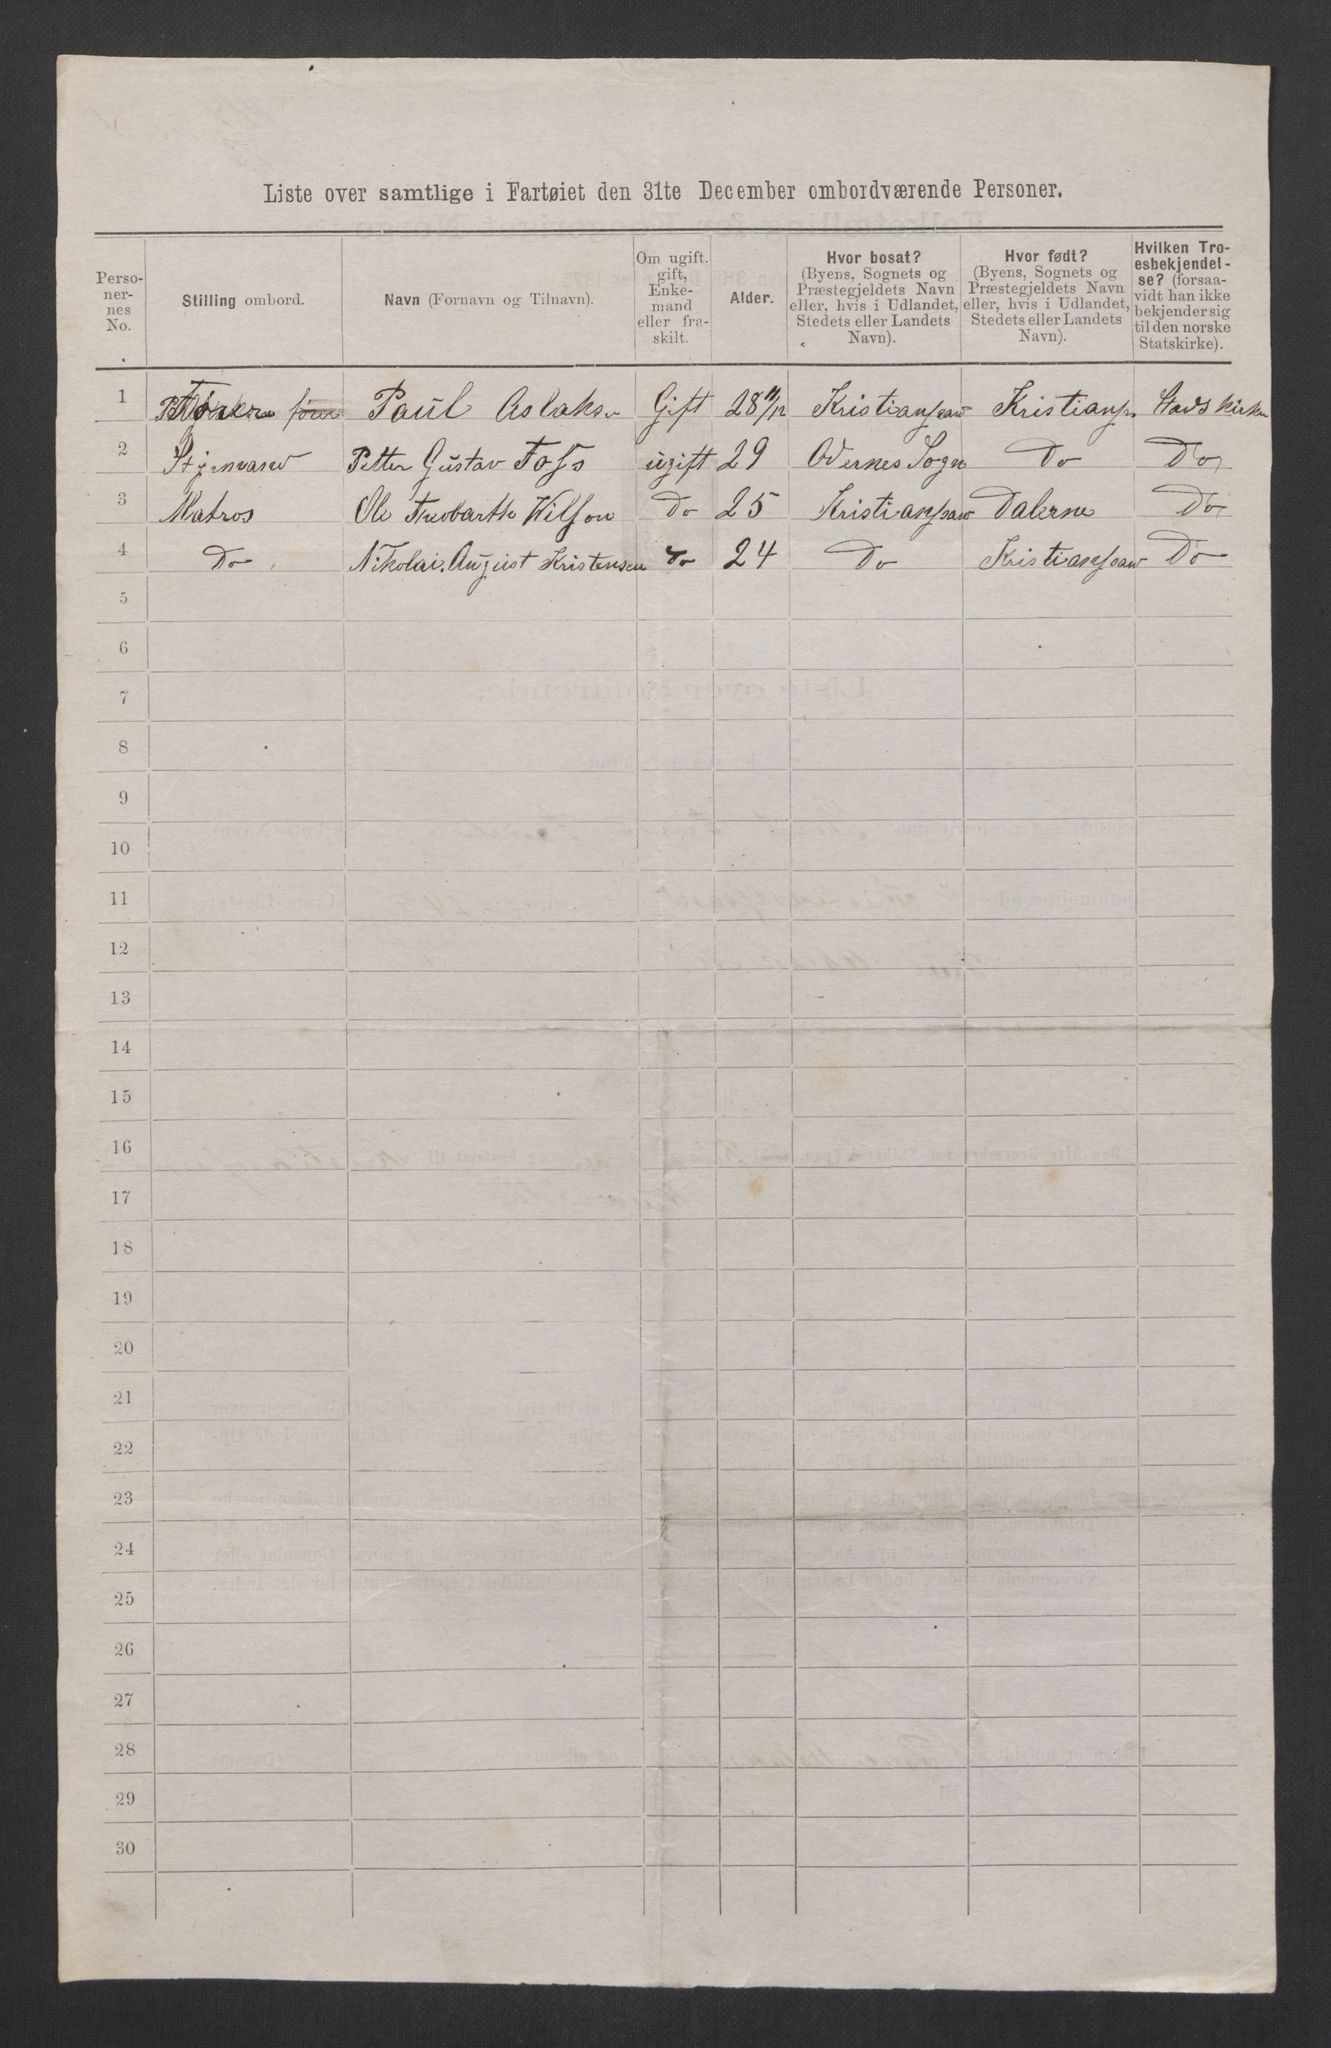 Liste over samtlige i Fartøiet den 31te December ombordværende Personer.
Perso-
ner-
nes
No.
Stilling ombord.
Navn (Fornavn og Tilnavn).
Om ugift,
gift,
Enke-
mand
eller fra-
skilt.
Alder.
Hvor bosat?
(Byens, Sognets og
Præstegjeldets Navn
eller, hvis i Udlandet,
Stedets eller Landets
Navn).
Hvor født?
(Byens, Sognets og
Præstegjeldets Navn
eller, hvis i Udlandet,
Stedets eller Landets
Navn).
Hvilken Tro-
esbekjendel-
se? (forsaa-
vidt han ikke
bekjender sig
til den norske
Statskirke).
1 Paul Aslaksen Gift 28 11/12 Kristianssand Kristians Stadskirken
2 Styrmand Petter Gustav Foss ugift 29 Odernes Sogn Do Do
3 Matros Ole Wilson Do 25 Kristianssand Dalerne Do
4 Do Nikolai August Kristensen do 24 Do Kristianssand Do
5
6
7
8
9
10
11
12
13
14
15
16
17
18
19
20
21
22
23
24
25
26
27
28
29
30